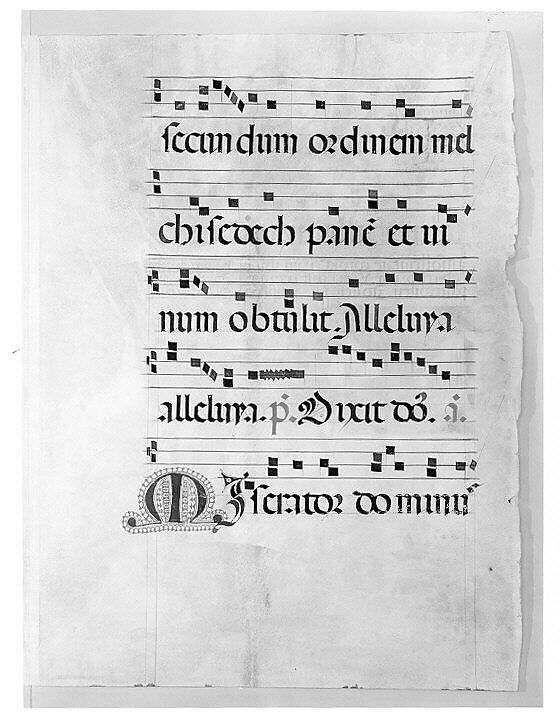 secundum ordinem mel
chisedech panē et ui
num obtulit. Alleluya
alleluya. p̄. Dixit dō. ā.
Miserator dominu